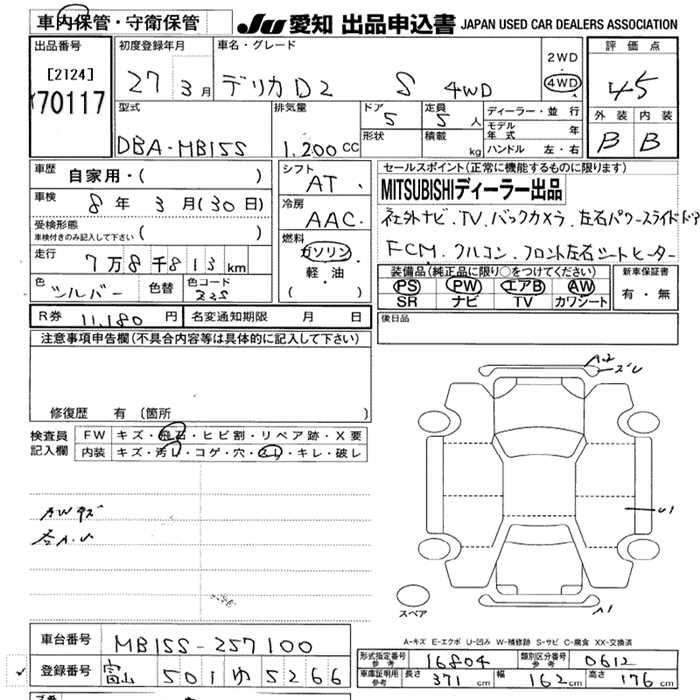 車内保管・守衛保管
JU 愛知 出品申込書 JAPAN USED CAR DEALERS ASSOCIATION
出品番号 初度登録年月 車名・グレード 2WD 評価点
[2124] 27 3月 デリカD2 S 4WD 4WD 4.5
70117
型式 排気量 ドア 定員 ディーラー・並行 外装 内装
5 5人 モデル年式 年
DBA-MB15S 1,200cc 形状 積載 kg ハンドル 左・右 B B
車歴 自家用・( ) シフト AT. セールスポイント(正常に機能するものに限ります)
MITSUBISHIディーラー出品
車検 8年 3月(30日) 冷房 AAC.
社外ナビ.TV.バックカメラ.左右パワースライドドア
受検形態 車検付きのみ記入して下さい ( ) 燃料 ガソリン
FCM.フルコン.フロント左右シートヒーター
走行 7万8千813km 軽・油 装備品(純正品に限り○をつけてください) 新車保証書
色 シルバー 色替 色コード Z2S ( ) PS PW エアB AW 有・無
SR ナビ TV カワシート
R券 11,180円 名変通知期限 月 日 後日品
注意事項申告欄(不具合内容等は具体的に記入して下さい)
A2
ズレ
修復歴 有(箇所 )
検査員記入欄 FW キズ・飛石・ヒビ割・リペア跡・X要
内装 キズ・汚れ・コゲ・穴・スレ・キレ・破レ
AWキズ
U1
各A.U
スペア A1
A-キズ E-エクボ U-凹み W-補修跡 S-サビ C-腐食 XX-交換済
車台番号 MB15S-257100
形式指定番号 参考 16804 類別区分番号 参考 0612
登録番号 富山 501 ゆ 5266
車庫証明用 参考 長さ 371cm 幅 162cm 高さ 176cm